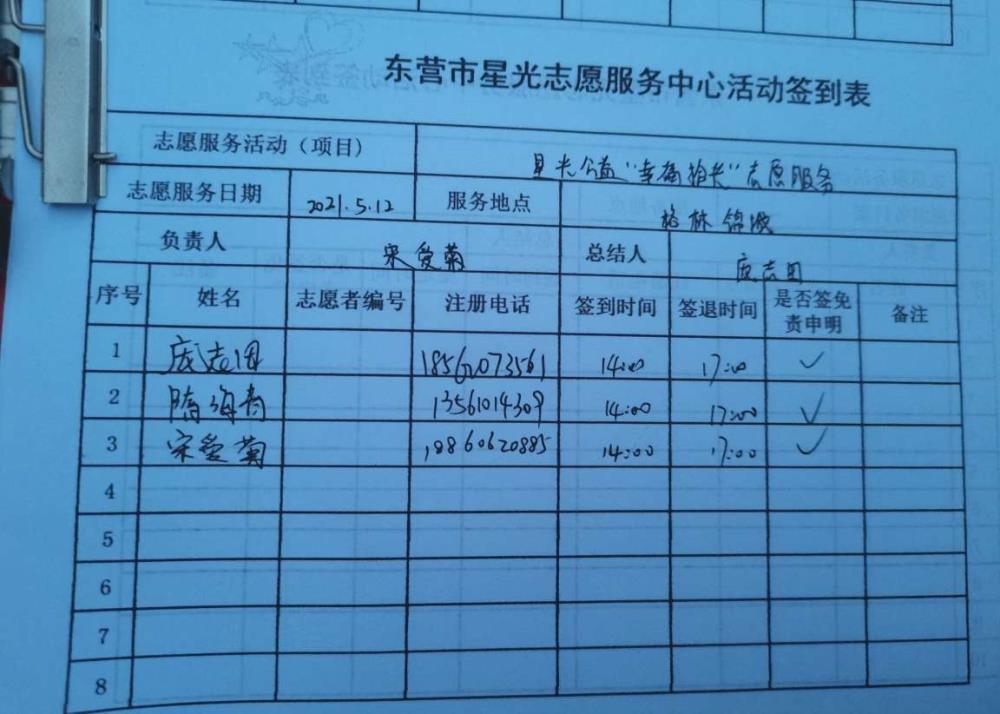 东营市星光志愿服务中心活动签到表
志愿服务活动（项目） 星光公益“幸福拍夹”志愿服务
志愿服务日期 2021.5.12 服务地点 格林锦城
负责人 宋爱菊 总结人 庞志国
序号 姓名 志愿者编号 注册电话 签到时间 签退时间 是否签免责申明 备注
1 庞志国 18562073561 14:00 17:00 ✓
2 隋海青 13561014309 14:00 17:00 ✓
3 宋爱菊 18860620885 14:00 17:00 ✓
4
5
6
7
8